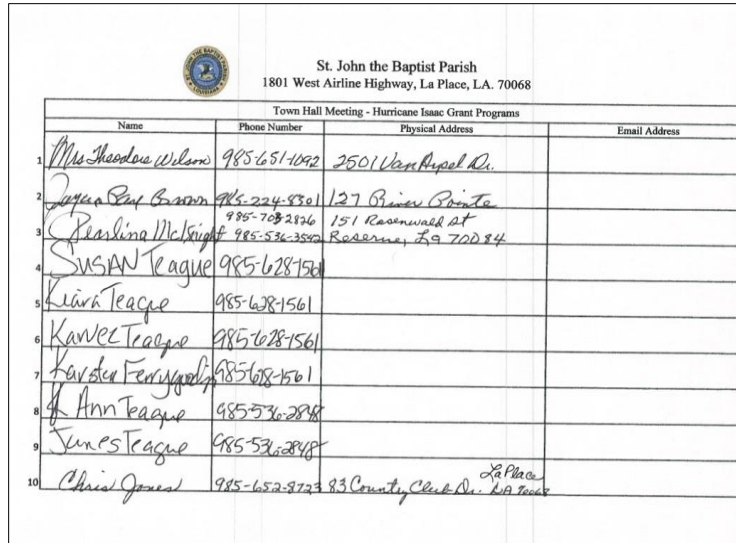 ST. JOHN THE BAPTIST PARISH
LOUISIANA
St. John the Baptist Parish
1801 West Airline Highway, La Place, LA. 70068
Town Hall Meeting - Hurricane Isaac Grant Programs
Name Phone Number Physical Address Email Address
1 Mrs Theodore Wilson 985-651-1092 2501 Van Arpel Dr.
2 Brown 985-224-8301 127 River Pointe
3 Pearlina McKnight 985-703-2826 985-536-3542 151 Rosenwald St
Reserve, La 70084
4 SUSAN Teague 985-628-1561
5 Kiara Teague 985-628-1561
6 Teague 985-628-1561
7 985-628-1561
8 Ann Teague 985-536-2848
9 James Teague 985-536-2848
10 Chris Jones 985-652-8723 83 Country Club Dr. LaPlace
LA 70068